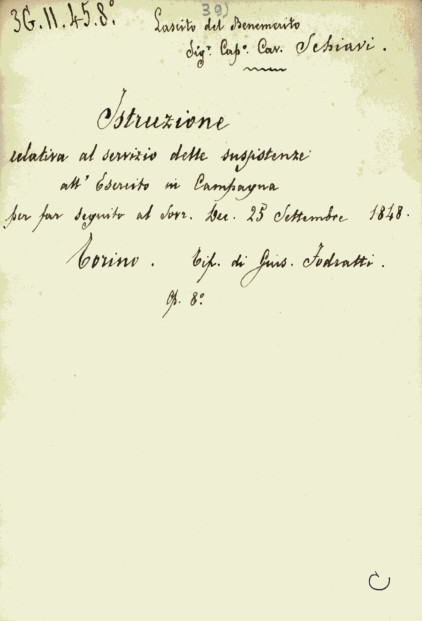 39)
3G.II.45.8°
Lascito del Benemerito
Sig.r Cap.o Cav. Schiavi.
Istruzione
relativa al servizio delle suspistenze
all' Esercito in Campagna
per far seguito al Sovr. Dec. 25 Settembre 1848.
Torino. Tip. di Gius. Fodratti.
Op. 8°
C